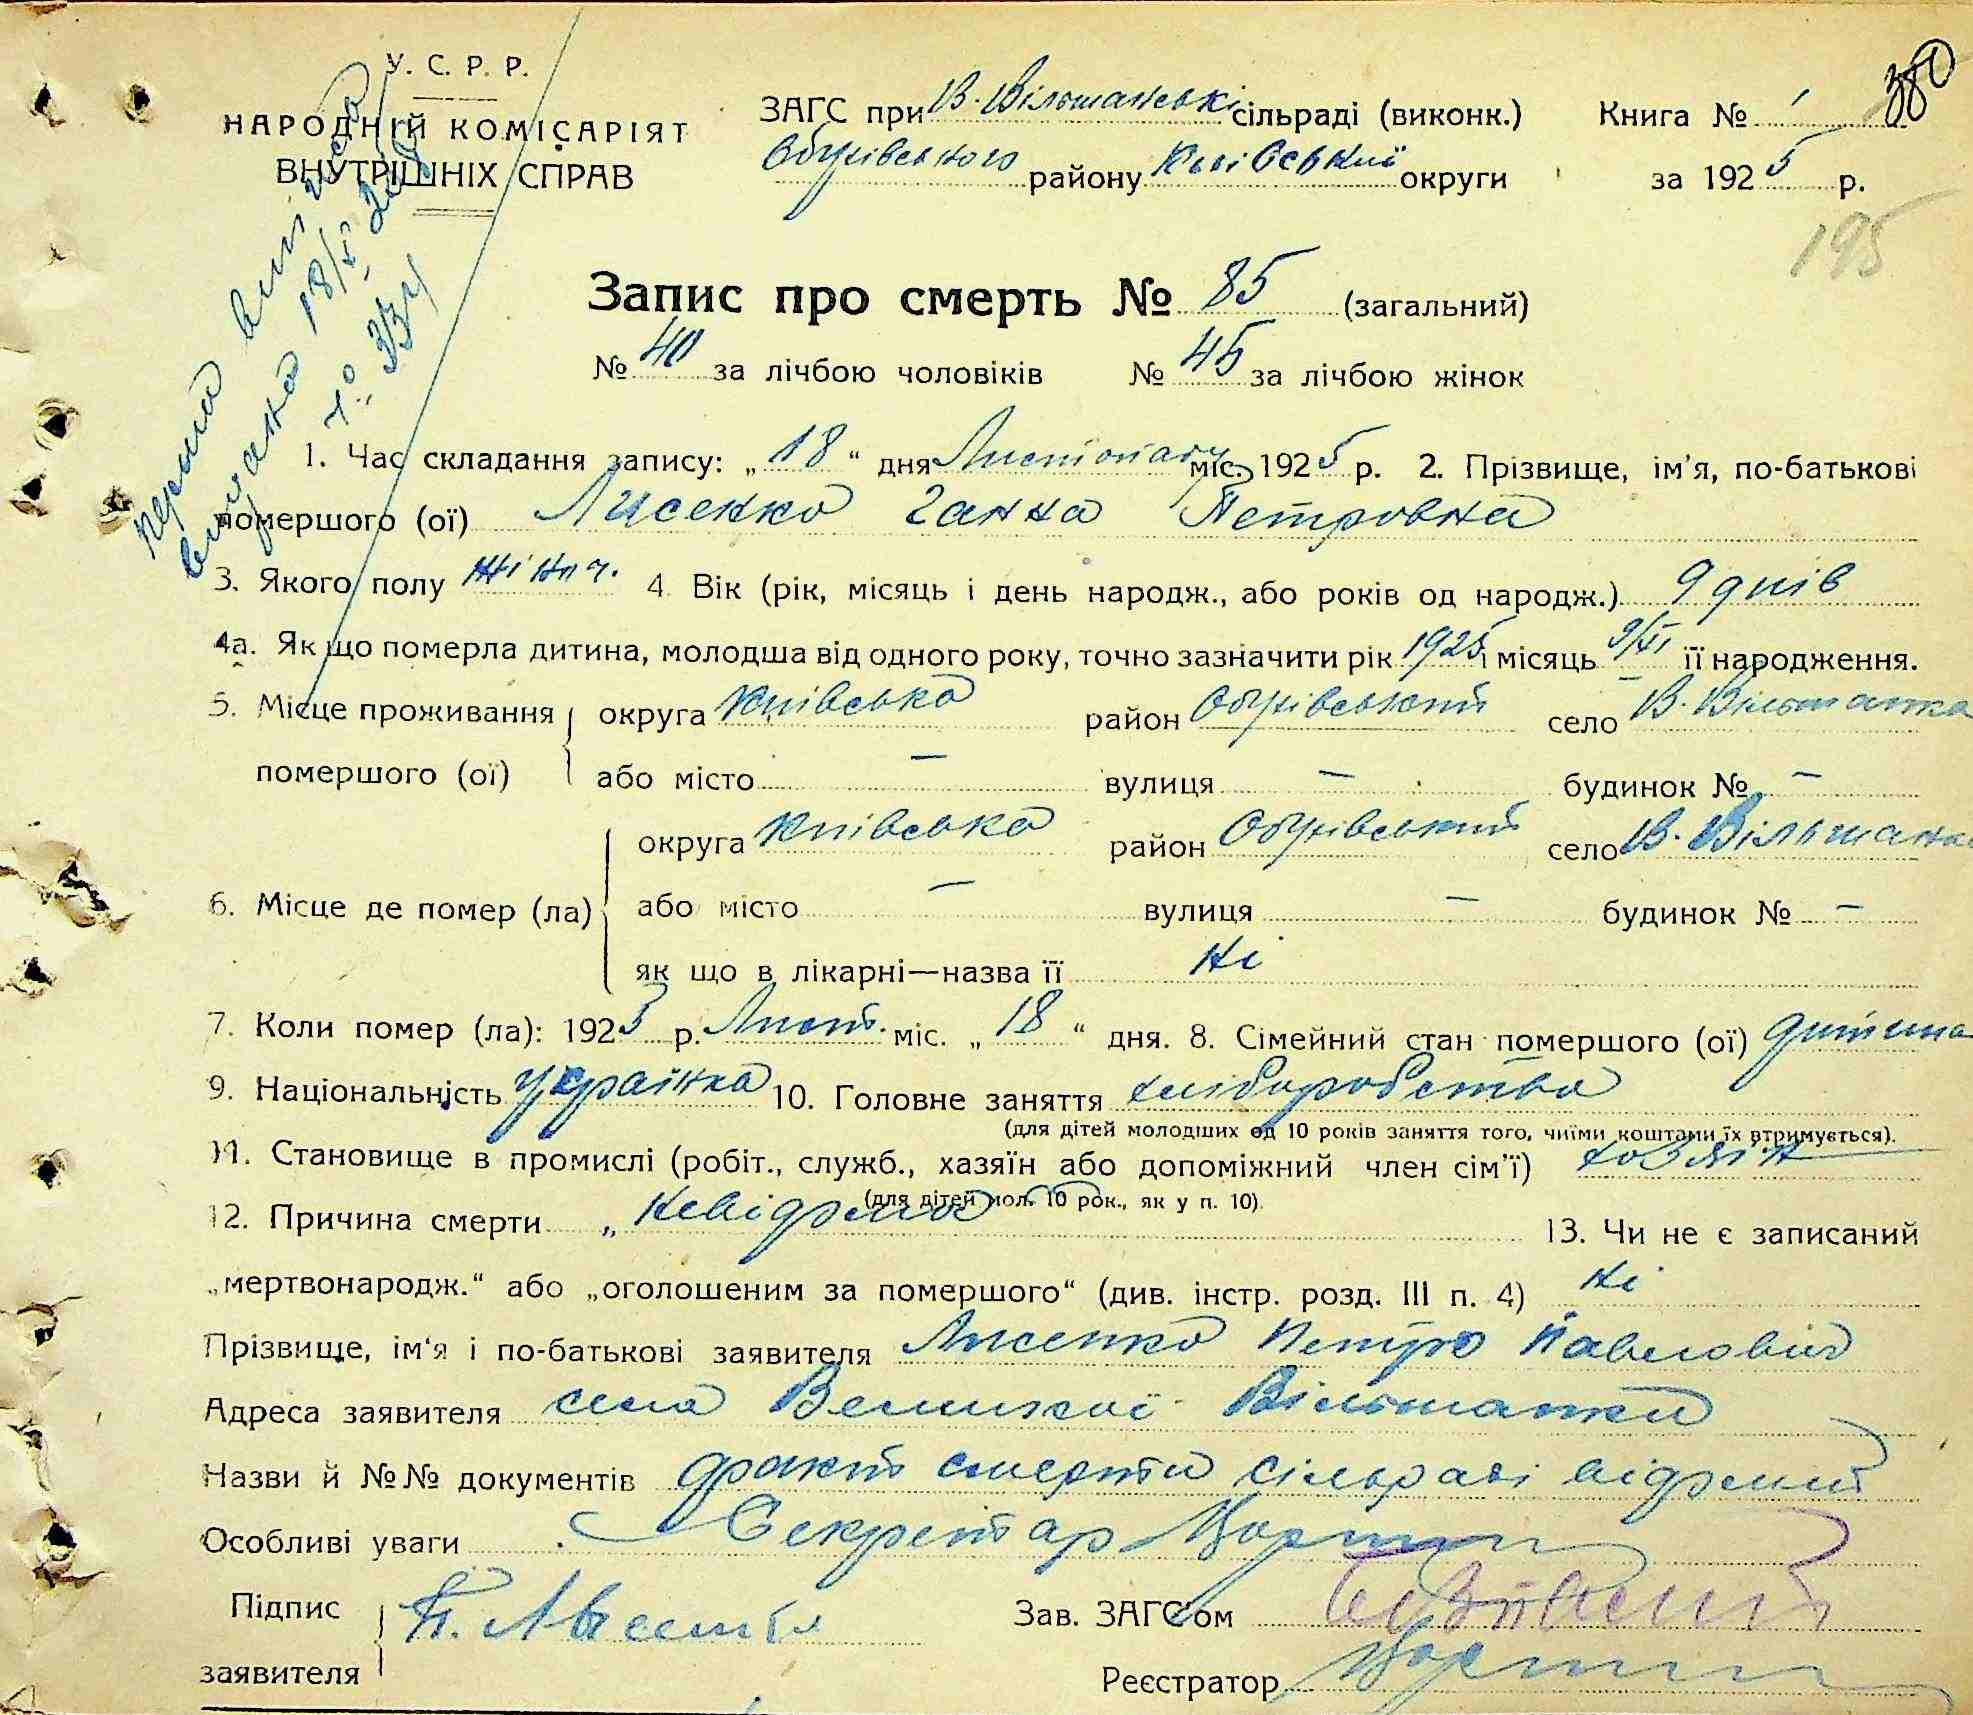 У. С. Р. Р.
НАРОДНІЙ КОМІСАРІЯТ
ВНУТРІШНІХ СПРАВ
ЗАГС при В. Вільшанські сільраді (виконк.)
Обухівського району Київської округи
Книга № 1
за 1925 р.
380
195
перша виписка
видана 18/XI 25
№ 334
Запис про смерть № 85 (загальний)
№ 40 за лічбою чоловіків № 45 за лічбою жінок
1. Час складання запису: „18“ дня Листопаду міс. 1925 р. 2. Прізвище, ім'я, по-батькові
помершого (ої) Лисенко Ганна Петровна
3. Якого полу жіноч. 4. Вік (рік, місяць і день народж., або років од народж.) 9 днів
4а. Як що померла дитина, молодша від одного року, точно зазначити рік 1925 і місяць 9/XI її народження.
5. Місце проживання округа Київська район Обухівський село В. Вільшанка
помершого (ої) або місто — вулиця — будинок № —
округа Київська район Обухівський село В. Вільшанка
6. Місце де помер (ла) або місто — вулиця — будинок № —
як що в лікарні—назва її Ні
7. Коли помер (ла): 1925 р. Лист. міс. „18“ дня. 8. Сімейний стан помершого (ої) дитина
9. Національність українка 10. Головне заняття хліборобство
(для дітей молодших од 10 років заняття того, чиїми коштами їх втримується).
11. Становище в промислі (робіт., служб., хазяїн або допоміжний член сім'ї) хозяїн
(для дітей мол. 10 рок., як у п. 10).
12. Причина смерти „ невідома 13. Чи не є записаний
„мертвонародж.“ або „оголошеним за помершого“ (див. інстр. розд. III п. 4) Ні
Прізвище, ім'я і по-батькові заявителя Лисенко Петро Павлович
Адреса заявителя села Великої Вільшанки
Назви й №№ документів факт смерти сільраді відомий
Особливі уваги Секретар
Підпис П. Лисенко Зав. ЗАГС'ом
заявителя Реєстратор